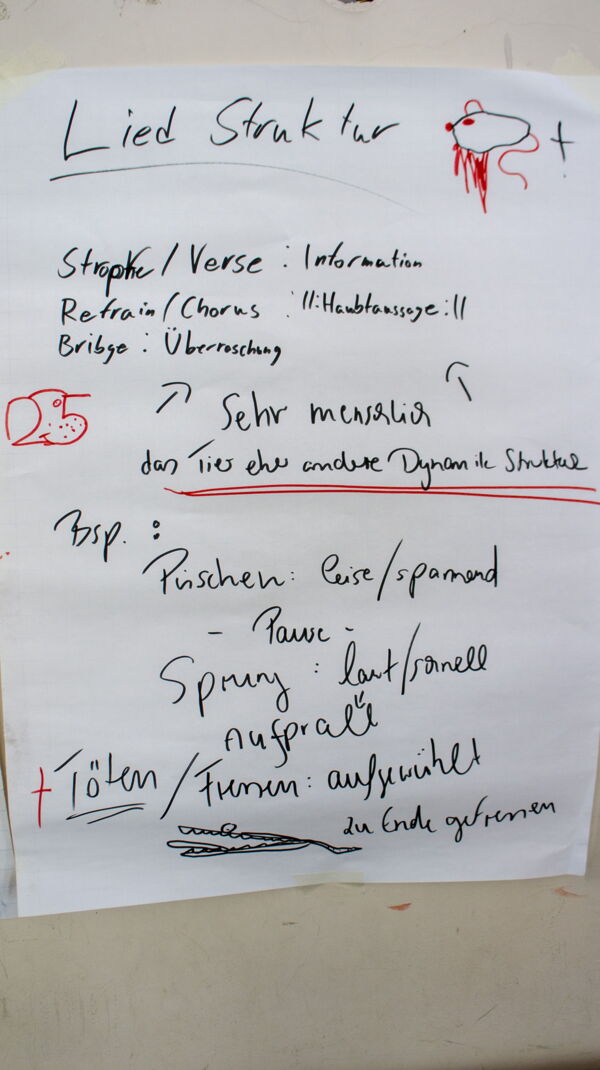 Lied Struktur
Strophe / Verse : Information
Refrain / Chorus : ||:Haubtaussage:||
Bribge : Überraschung
Sehr menschlich
das Tier eher andere Dynamik Struktur
25
Bsp. :
Pirschen: leise/spannend
- Pause -
Sprung : laut/schnell
Aufprall
Töten / Fressen: aufgewühlt
zu Ende gefressen